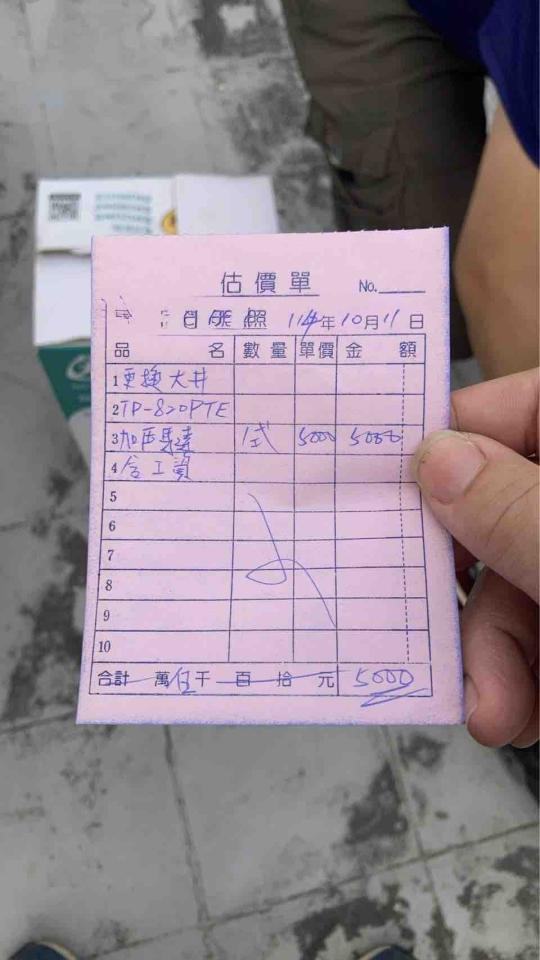 估價單 No.
114年10月11日
品名 數量 單價 金額
1 更換大井
2 TP-820PTE
3 加压馬達 1式 5000 5000
4 含工資
5
6
7
8
9
10
合計 萬伍千百拾元 5000